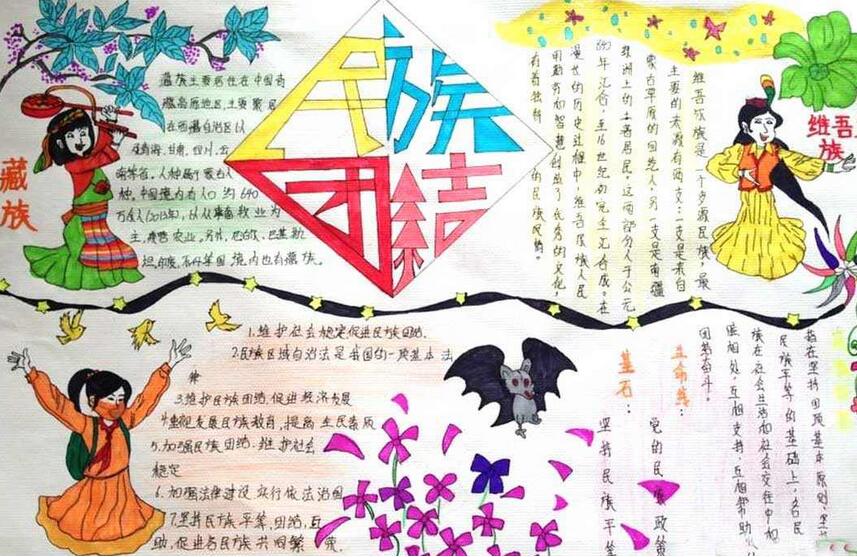 民族
团结
藏族
藏族主要居住在中国青
藏高原地区,主要聚居
在西藏自治区以
及青海、甘肃、四川、云
南等省。人种属于蒙古人
种。中国境内有人口约640
万余人(2013年),以从事畜牧业为
主,兼营农业。另外,尼泊尔、巴基斯
坦、印度、不丹等国境内也有藏族。
维吾
族
维吾尔族是一个多源民族,最
主要的来源有两支:一支是来自
蒙古草原的回纥人,另一支是南疆
绿洲上的土著居民。这两部分人于公元
840年汇合,至16世纪初完全汇合成。在
漫长的历史过程中,维吾尔族人民
用勤劳和智慧创造了优秀的文化,
有着独特的民族风情。
1.维护社会稳定,促进民族团结
2.民族区域自治法是我国的一项基本法
律
3.维护民族团结,促进经济发展
4.重视发展民族教育,提高全民素质
5.加强民族团结、维护社会
稳定
6.加强法律建设,实行依法治国
7.坚持民族平等、团结、互
助,促进各民族共同繁荣。
指在坚持四项基本原则、坚持
民族平等的基础上,各民
族在社会生活和社会交往中和
睦相处、互相支持、互相帮助、
团结奋斗。
生命线:
党的民族政策
基石:
坚持民族平等